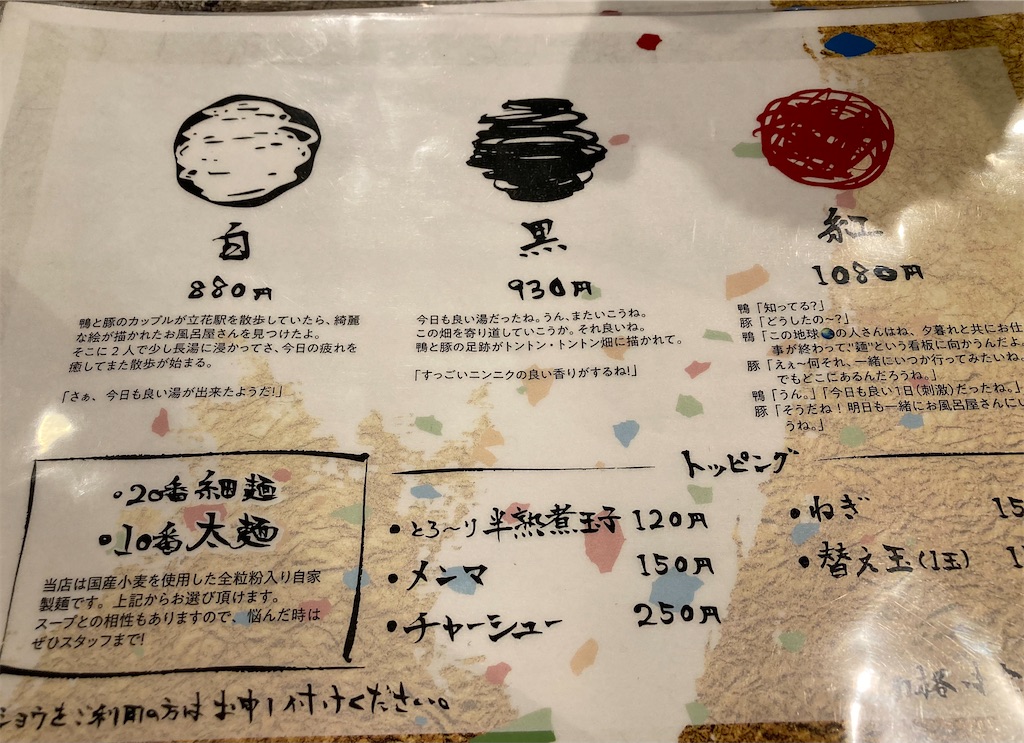 白
880円
鴨と豚のカップルが立花駅を散歩していたら、綺麗
な絵が描かれたお風呂屋さんを見つけたよ。
そこに2人で少し長湯に浸かってさ、今日の疲れを
癒してまた散歩が始まる。
「さぁ、今日も良い湯が出来たようだ!」
黒
930円
今日も良い湯だったね。うん、またいこうね。
この畑を寄り道していこうか。それ良いね。
鴨と豚の足跡がトントン・トントン畑に描かれて。
「すっごいニンニクの良い香りがするね!」
紅
1080円
鴨「知ってる?」
豚「どうしたの〜?」
鴨「この地球🌏の人さんはね、夕暮れと共にお仕
事が終わって"麺"という看板に向かうんだよ。
豚「えぇ〜何それ、一緒にいつか行ってみたいね。
でもどこにあるんだろうね。」
鴨「うん。」「今日も良い1日(刺激)だったね。」
豚「そうだね!明日も一緒にお風呂屋さんにい
うね。」
・20番 細麺
・10番 太麺
当店は国産小麦を使用した全粒粉入り自家
製麺です。上記からお選び頂けます。
スープとの相性もありますので、悩んだ時は
ぜひスタッフまで!
トッピング
・とろ〜り半熟煮玉子 120円
・メンマ 150円
・チャーシュー 250円
・ねぎ
・替え玉(1玉)
ショウをご利用の方はお申し付けください。